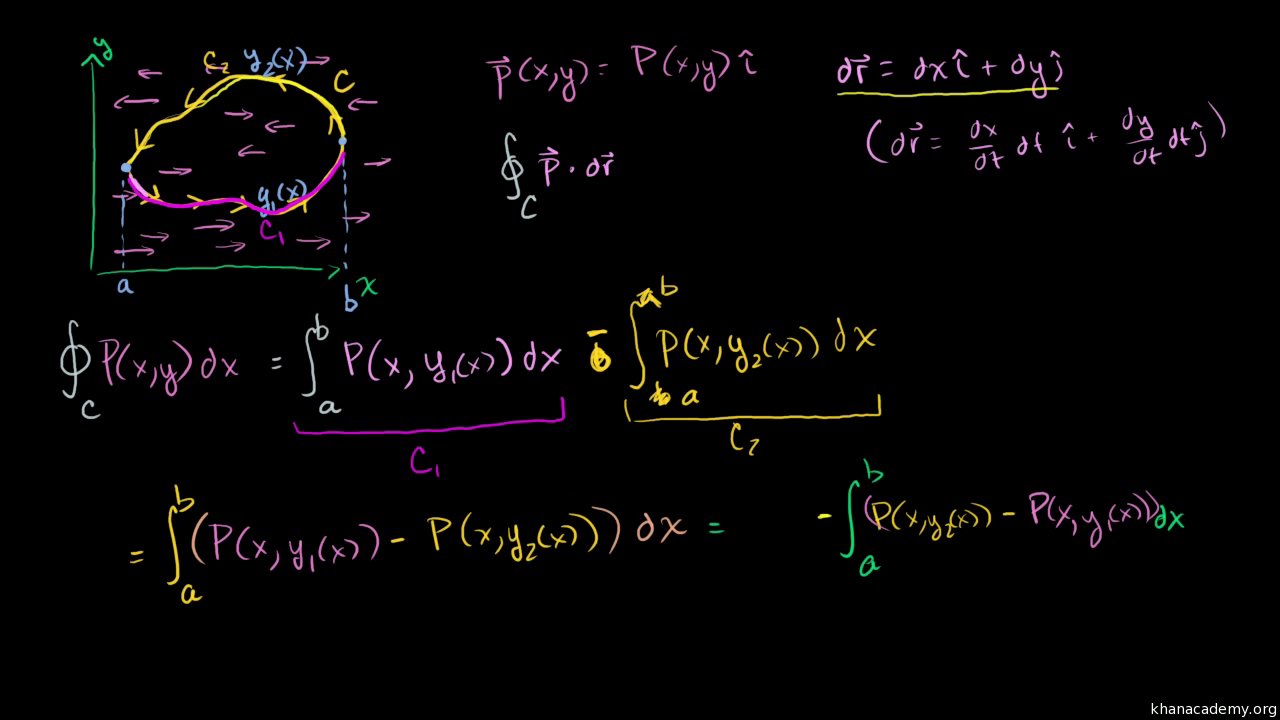 y
C₂ y₂(x)
C
y₁(x)
C₁
a
b x
p⃗(x,y) = P(x,y) î
∮_C p⃗ · dr⃗
dr⃗ = dx î + dy ĵ
(dr⃗ = dx/dt dt î + dy/dt dt ĵ)
∮_C P(x,y) dx = ∫_a^b P(x, y₁(x)) dx − ∫_a^b P(x, y₂(x)) dx
C₁
C₂
= ∫_a^b (P(x, y₁(x)) − P(x, y₂(x))) dx = − ∫_a^b (P(x, y₂(x)) − P(x, y₁(x))) dx
khanacademy.org